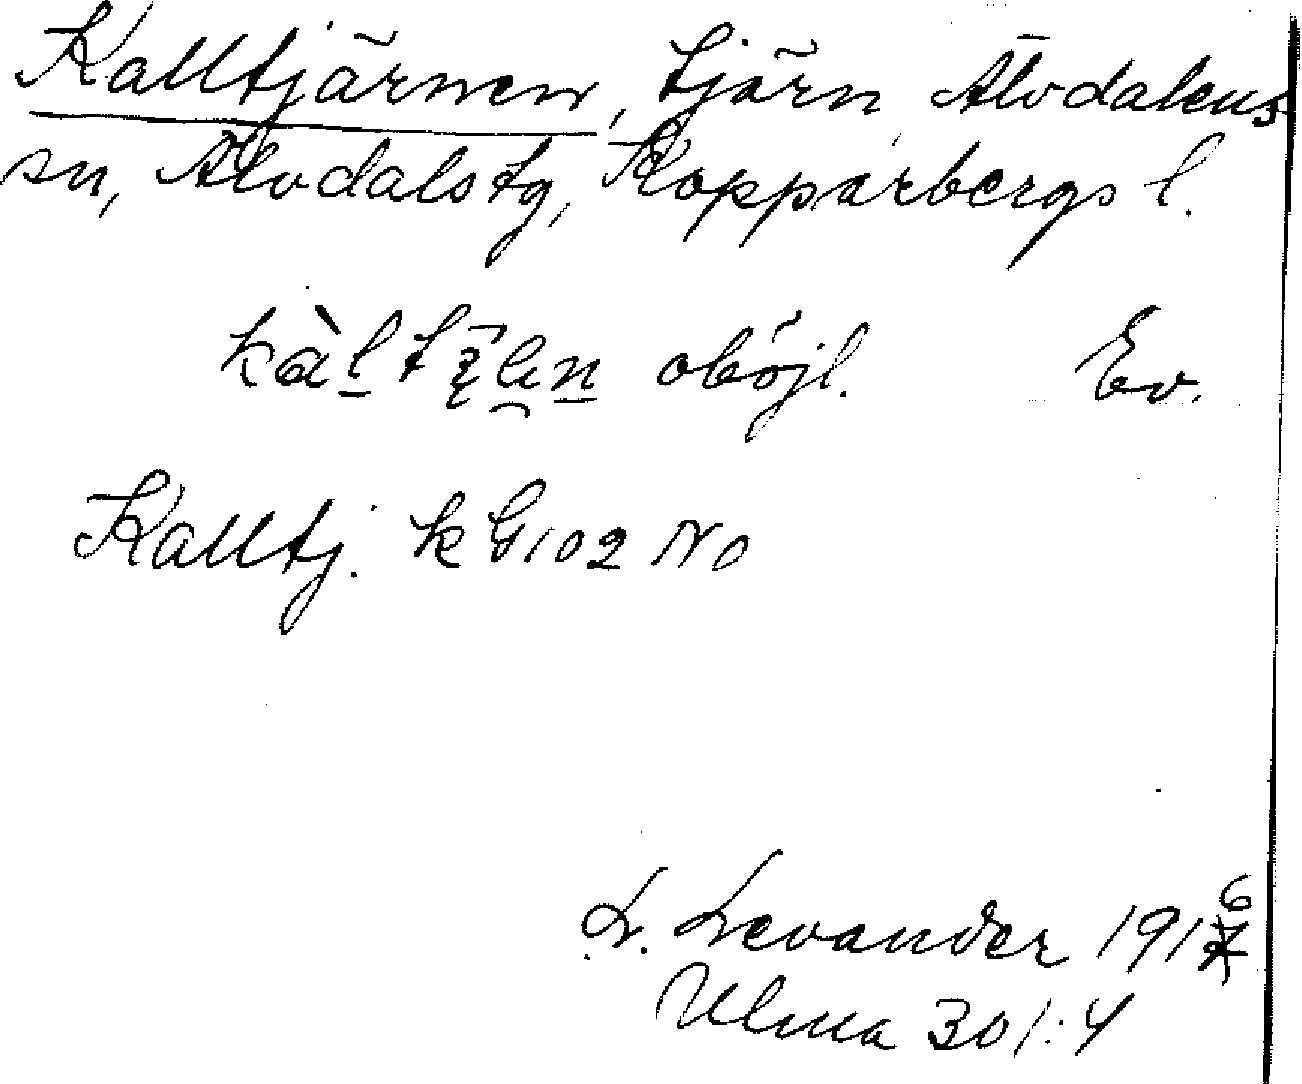 Kalltjärnen, tjärn Älvdalens
sn, Älvdals tg, Kopparbergs l.
oböjl. Ev.
Kalltj. k G 102 NO
L. Levander 1916
Ulma 301:4